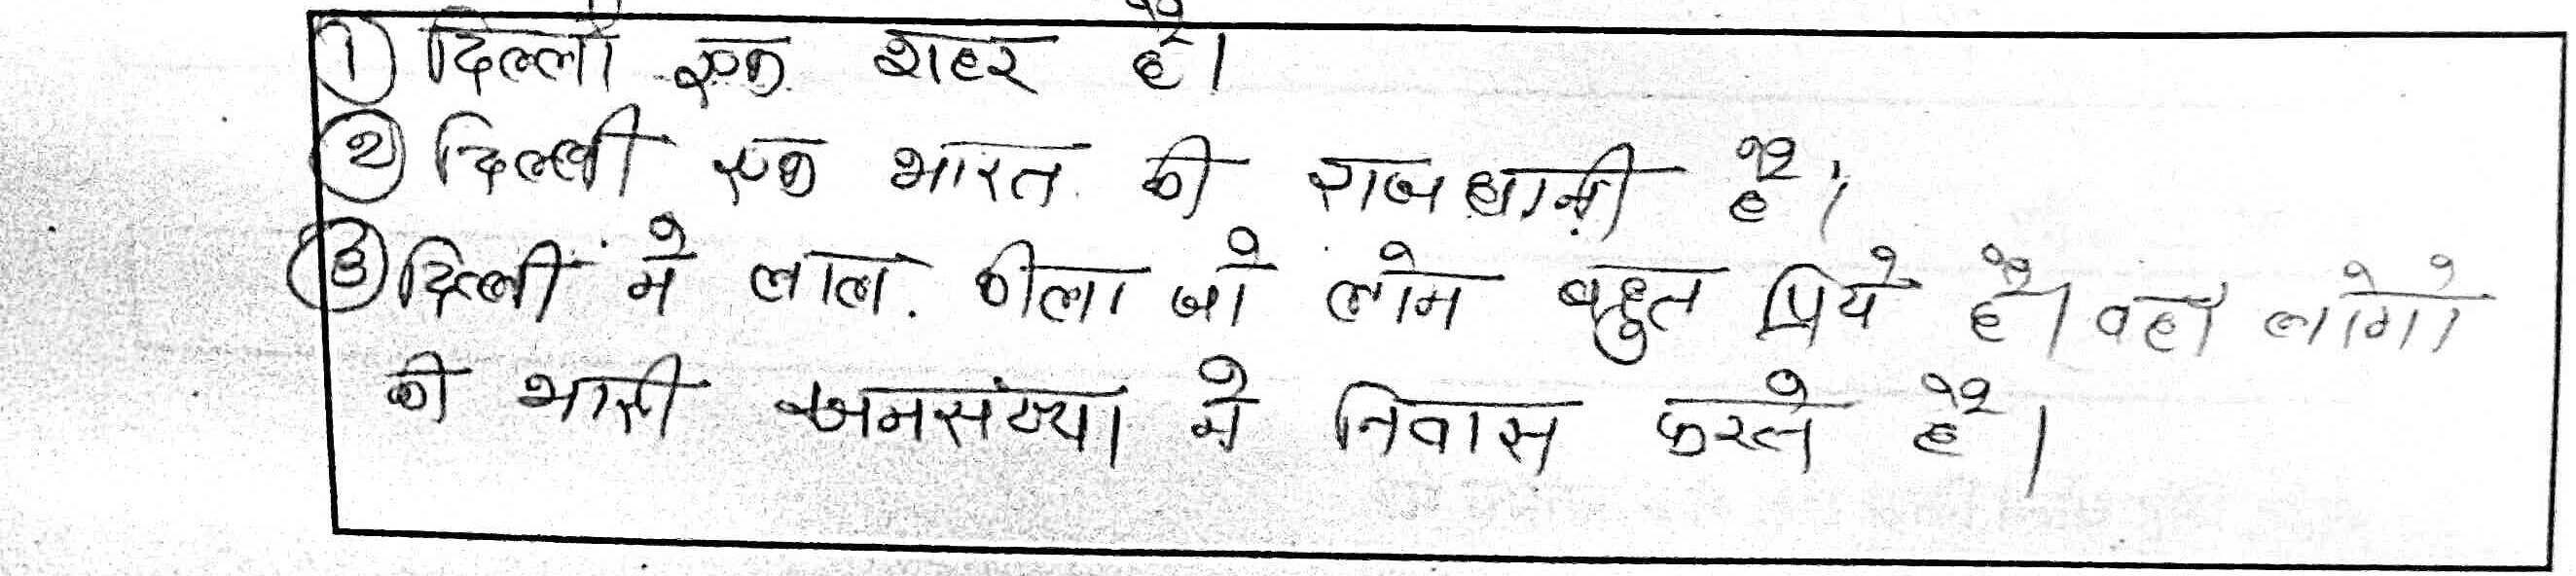 ① दिल्ली एक शहर है।
② दिल्ली एक भारत की राजधानी है।
③ दिल्ली मे लाल कीला जो लोग बहुत प्रिये है। वहाँ लोगो
की भारी जनसंख्या मे निवास करते है।